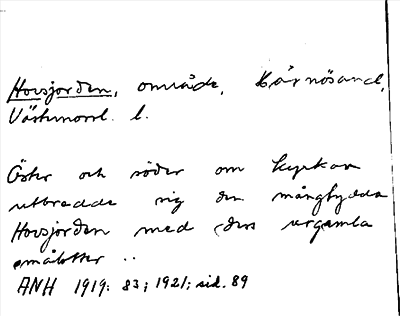 Hovsjorden, område, Härnösand,
Västernorrl. l.
Öster och söder om kyrkan
utbredde sig den mångbydda
Hovsjorden med dess urgamla
smålotter ..
ANH 1919: 83; 1921; sid. 89